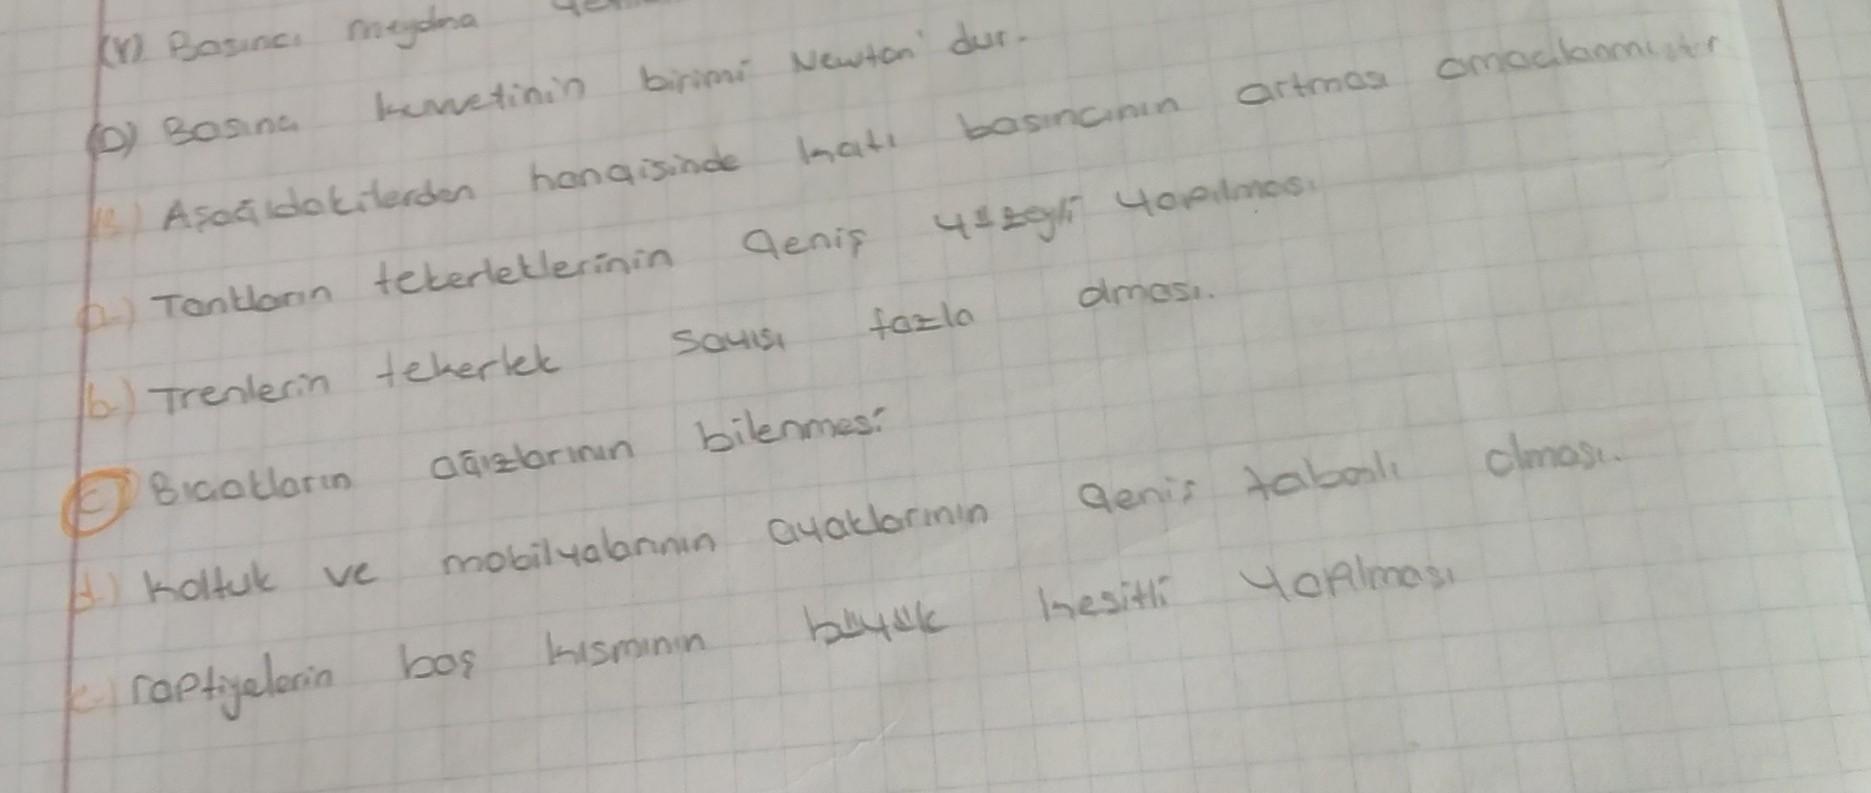 (Y) Basıncı meydna
(D) Basınç kuvvetinin birimi Newton'dur.
Aşağıdakilerden hangisinde katı basıncının artması amaçlanmıştır
a) Tankların tekerleklerinin geniş yüzeyli yapılması.
b) Trenlerin tekerlek sayısı fazla olması.
c) Bıçakların ağızlarının bilenmesi
d) Koltuk ve mobilyalarının ayaklarının geniş tabanlı olması.
e) raptiyelerin baş kısmının büyük kesitli yapılması